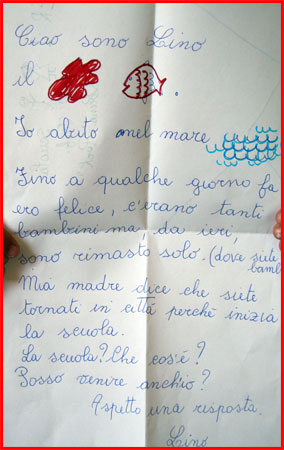 Ciao sono Lino
il .
Io abito nel mare
Fino a qualche giorno fa
ero felice, c'erano tanti
bambini ma, da ieri,
sono rimasto solo. (dove siete
bamb
Mia madre dice che siete
tornati in città perchè inizia
la scuola.
La scuola? Che cos'è?
Posso venire anch'io?
Aspetto una risposta.
Lino